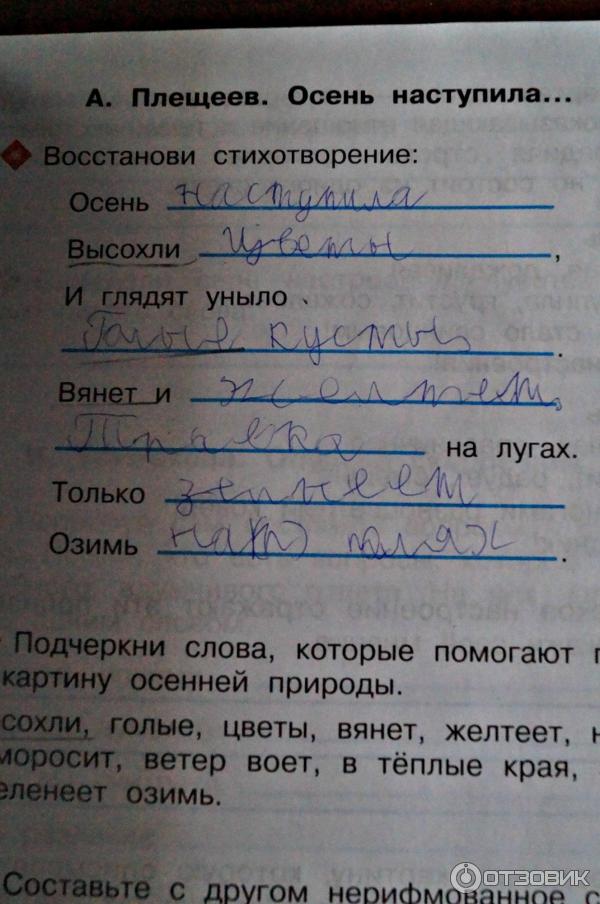 А. Плещеев. Осень наступила...
Восстанови стихотворение:
Осень наступила
Высохли Цветы,
И глядят уныло
Голые кусты.
Вянет и желтеет
Травка на лугах.
Только зелнеет
Озимь на полях.
Подчеркни слова, которые помогают п
картину осенней природы.
сохли, голые, цветы, вянет, желтеет, н
моросит, ветер воет, в тёплые края,
еленеет озимь.
Составьте с другом нерифмованное с
ОТЗОВИК